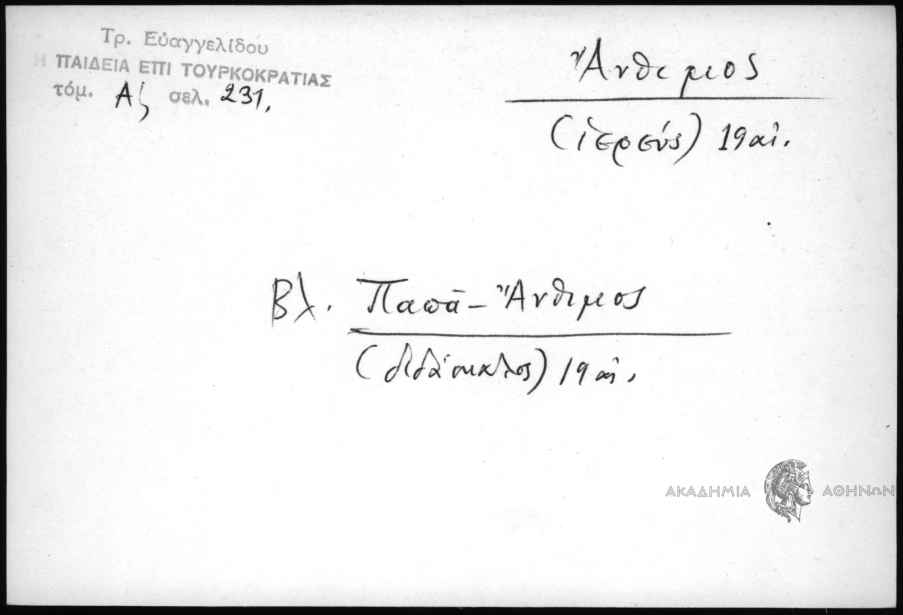 Τρ. Εὐαγγελίδου
Η ΠΑΙΔΕΙΑ ΕΠΙ ΤΟΥΡΚΟΚΡΑΤΙΑΣ
τόμ. Α΄, σελ. 231.
Ἄνθιμος
(ἱερεύς) 19 αἰ.
Βλ. Παπᾶ-Ἄνθιμος
(διδάσκαλος) 19 αἰ.
ΑΚΑΔΗΜΙΑ ΑΘΗΝΩΝ